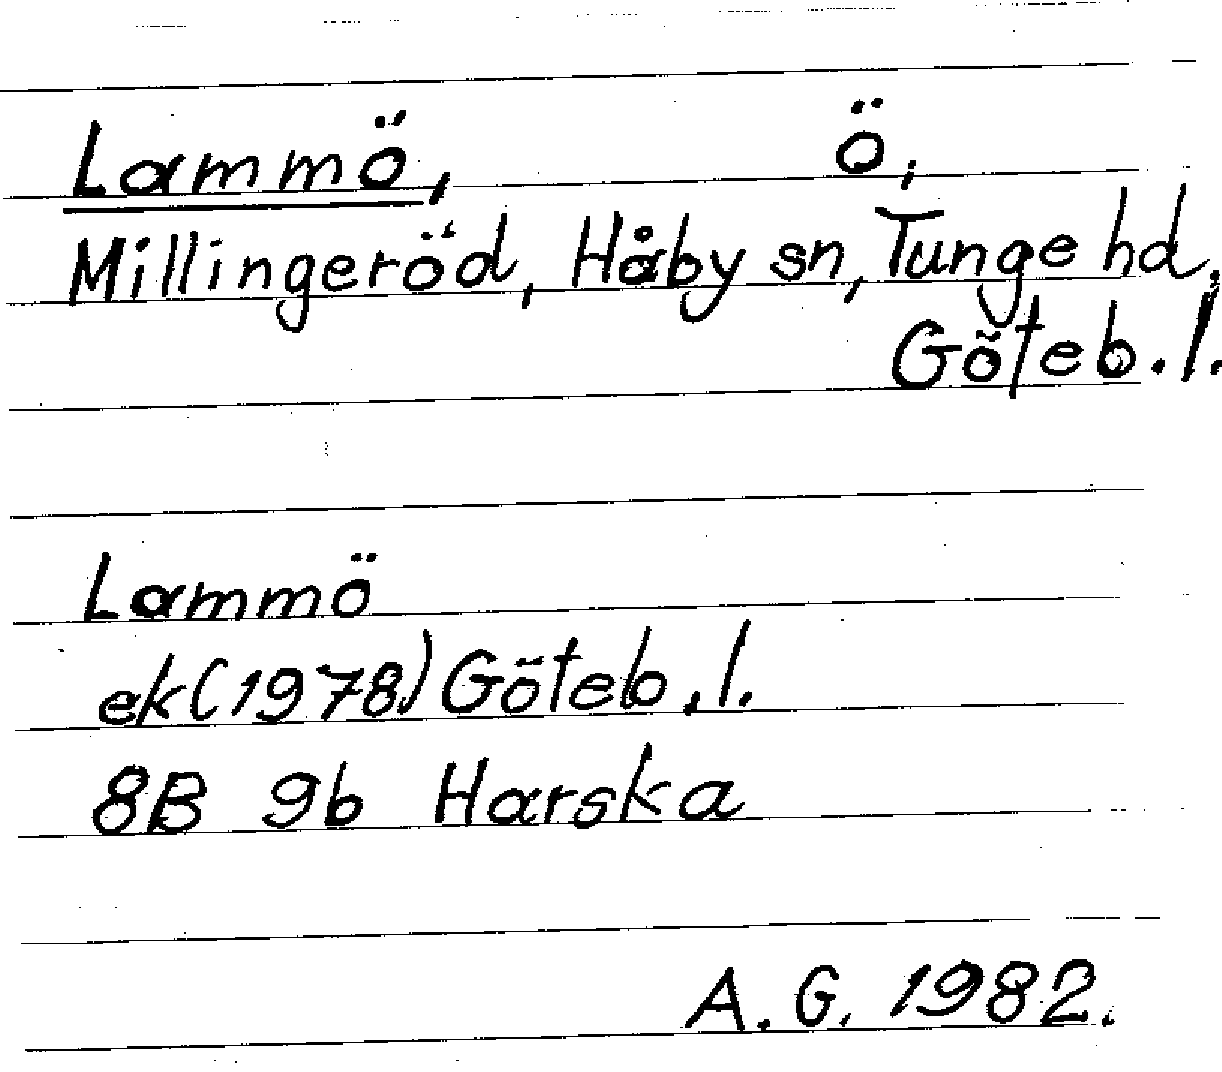 Lammö, ö,
Millingeröd, Håby sn, Tunge hd,
Göteb. l.
Lammö
ek (1978) Göteb. l.
8B 9b Harska
A. G. 1982.